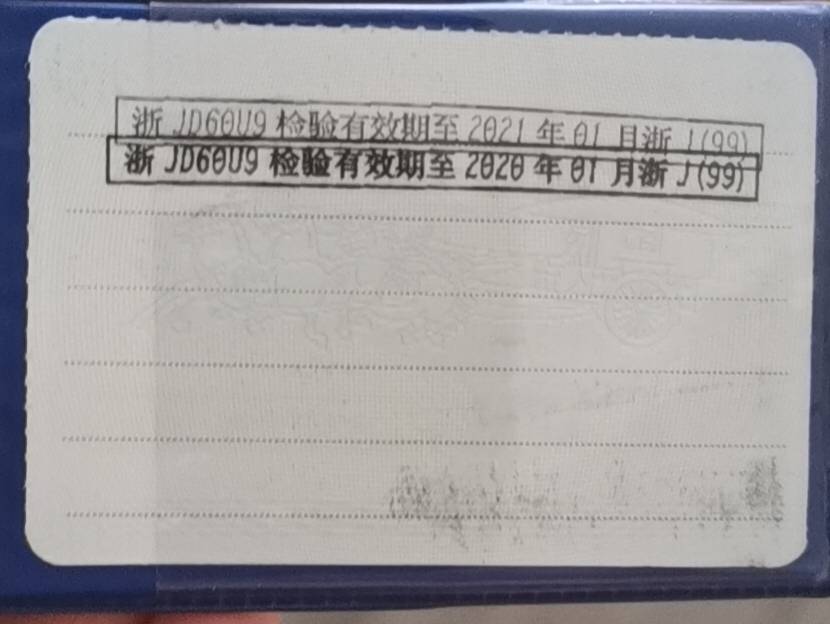 浙 JD60U9 检验有效期至 2021 年 01 月浙 J(99)
浙 JD60U9 检验有效期至 2020 年 01 月浙 J(99)